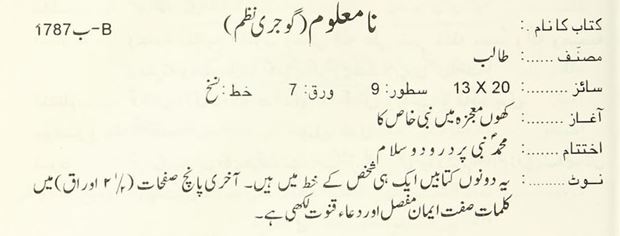 کتاب کا نام .: نامعلوم (گوجری نظم) B-ب1787
مصنّف ......: طالب
سائز .........: 13 X 20 سطور: 9 ورق: 7 خط: نسخ
آغاز .........: کھوں معجزہ میں نبی خاص کا
اختتام ......: محمدؐ نبی پر درود و سلام
نوٹ .........: یہ دونوں کتابیں ایک ہی شخص کے خط میں ہیں۔ آخری پانچ صفحات (۲ ۱/۲ اوراق) میں
کلمات صفت ایمان مفصل اور دعاء قنوت لکھی ہے۔